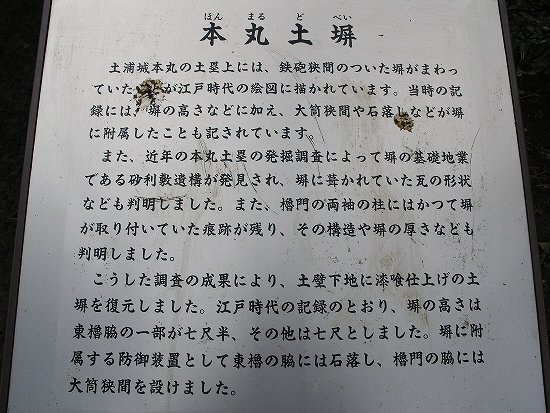 ほん まる ど べい
本丸土塀
土浦城本丸の土塁上には、鉄砲狭間のついた塀がまわっ
ていた が江戸時代の絵図に描かれています。当時の記
録には、塀の高さなどに加え、大筒狭間や石落しなどが塀
に附属したことも記されています。
また、近年の本丸土塁の発掘調査によって塀の基礎地業
である砂利敷遺構が発見され、塀に葺かれていた瓦の形状
なども判明しました。また、櫓門の両袖の柱にはかつて塀
が取り付いていた痕跡が残り、その構造や塀の厚さなども
判明しました。
こうした調査の成果により、土壁下地に漆喰仕上げの土
塀を復元しました。江戸時代の記録のとおり、塀の高さは
東櫓脇の一部が七尺半、その他は七尺としました。塀に附
属する防御装置として東櫓の脇には石落し、櫓門の脇には
大筒狭間を設けました。